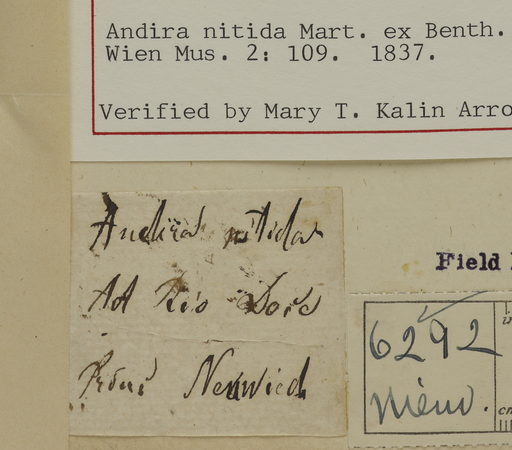 Andira nitida Mart. ex Benth.
Wien Mus. 2: 109. 1837.
Verified by Mary T. Kalin Arro
Andira nitida
Ad Rio Doce
Neuwied
Field
6292
cm